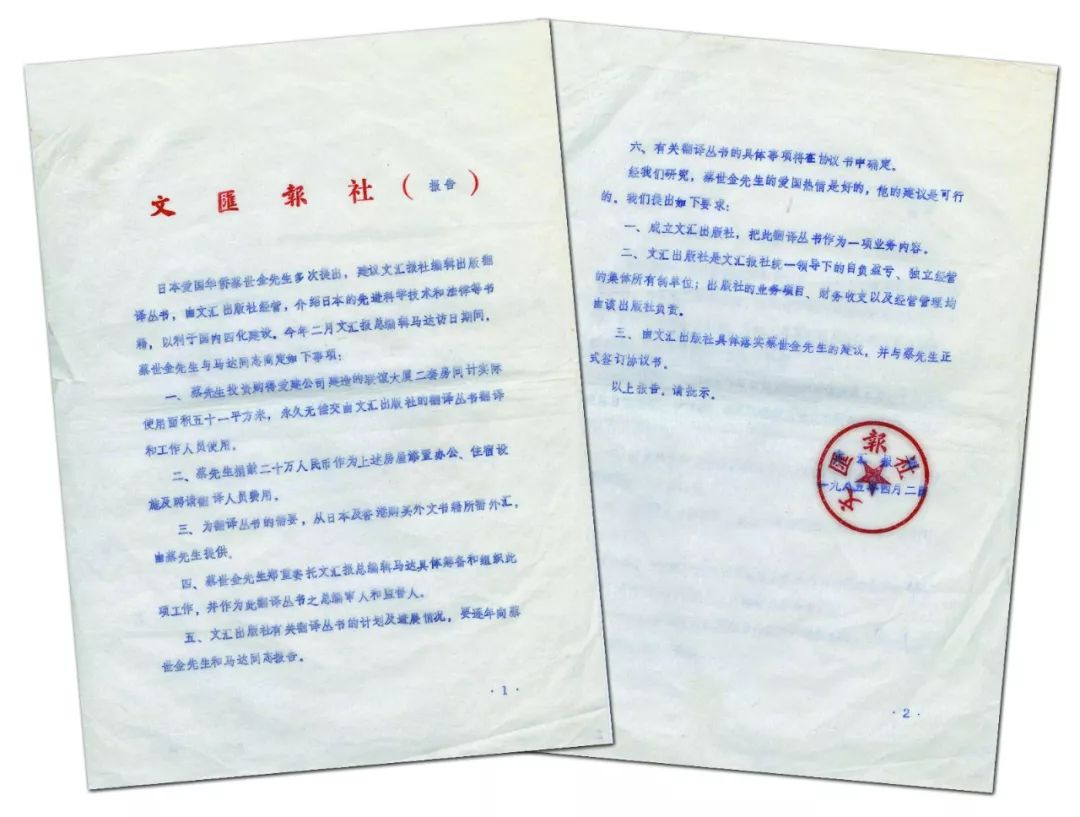 文匯報社(报告)
日本爱国华侨蔡世金先生多次提出，建议文汇报社编辑出版翻
译丛书，由文汇出版社经营，介绍日本的先进科学技术和法律等书
籍，以利于国内四化建设。今年二月文汇报总编辑马达访日期间，
蔡世金先生与马达同志商定如下事项：
一、蔡先生投资购得爱建公司建造的联谊大厦二套房间计实际
使用面积五十一平方米，永久无偿交由文汇出版社的翻译丛书翻译
和工作人员使用。
二、蔡先生捐献二十万人民币作为上述房屋添置办公、住宿设
施及聘请翻译人员费用。
三、为翻译丛书的需要，从日本及香港购买外文书籍所需外汇，
由蔡先生提供。
四、蔡世金先生郑重委托文汇报总编辑马达具体筹备和组织此
项工作，并作为此翻译丛书之总编审人和监督人。
五、文汇出版社有关翻译丛书的计划及进展情况，要逐年向蔡
世金先生和马达同志报告。
·1·
六、有关翻译丛书的具体事项将在协议书中确定。
经我们研究，蔡世金先生的爱国热情是好的，他的建议是可行
的。我们提出如下要求：
一、成立文汇出版社，把此翻译丛书作为一项业务内容。
二、文汇出版社是文汇报社统一领导下的自负盈亏、独立经营
的集体所有制单位；出版社的业务项目、财务收支以及经营管理均
由该出版社负责。
三、由文汇出版社具体落实蔡世金先生的建议，并与蔡先生正
式签订协议书。
以上报告，请批示。
文匯報社
一九八五年四月二日
·2·